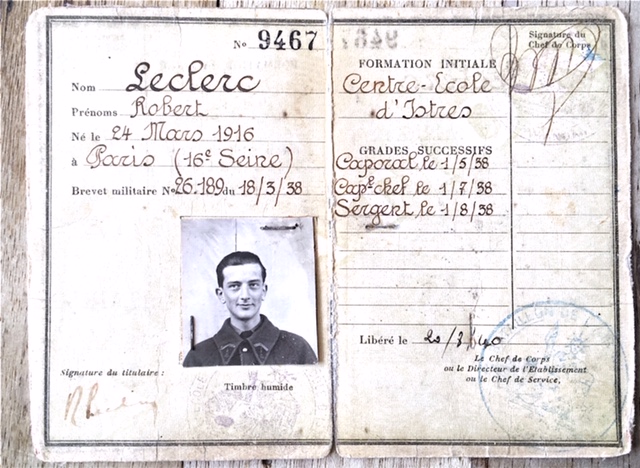 No 9467
Nom Leclerc
Prénoms Robert
Né le 24 Mars 1916
à Paris (16e Seine)
Brevet militaire No 26.189 du 18/3/38
Signature du titulaire :
Timbre humide
Signature du
Chef de Corps
FORMATION INITIALE
Centre-Ecole
d'Istres
GRADES SUCCESSIFS
Caporal le 1/5/38
Capl chef le 1/7/38
Sergent le 1/8/38
Libéré le
Le Chef de Corps
ou le Directeur de l'Etablissement
ou le Chef de Service,